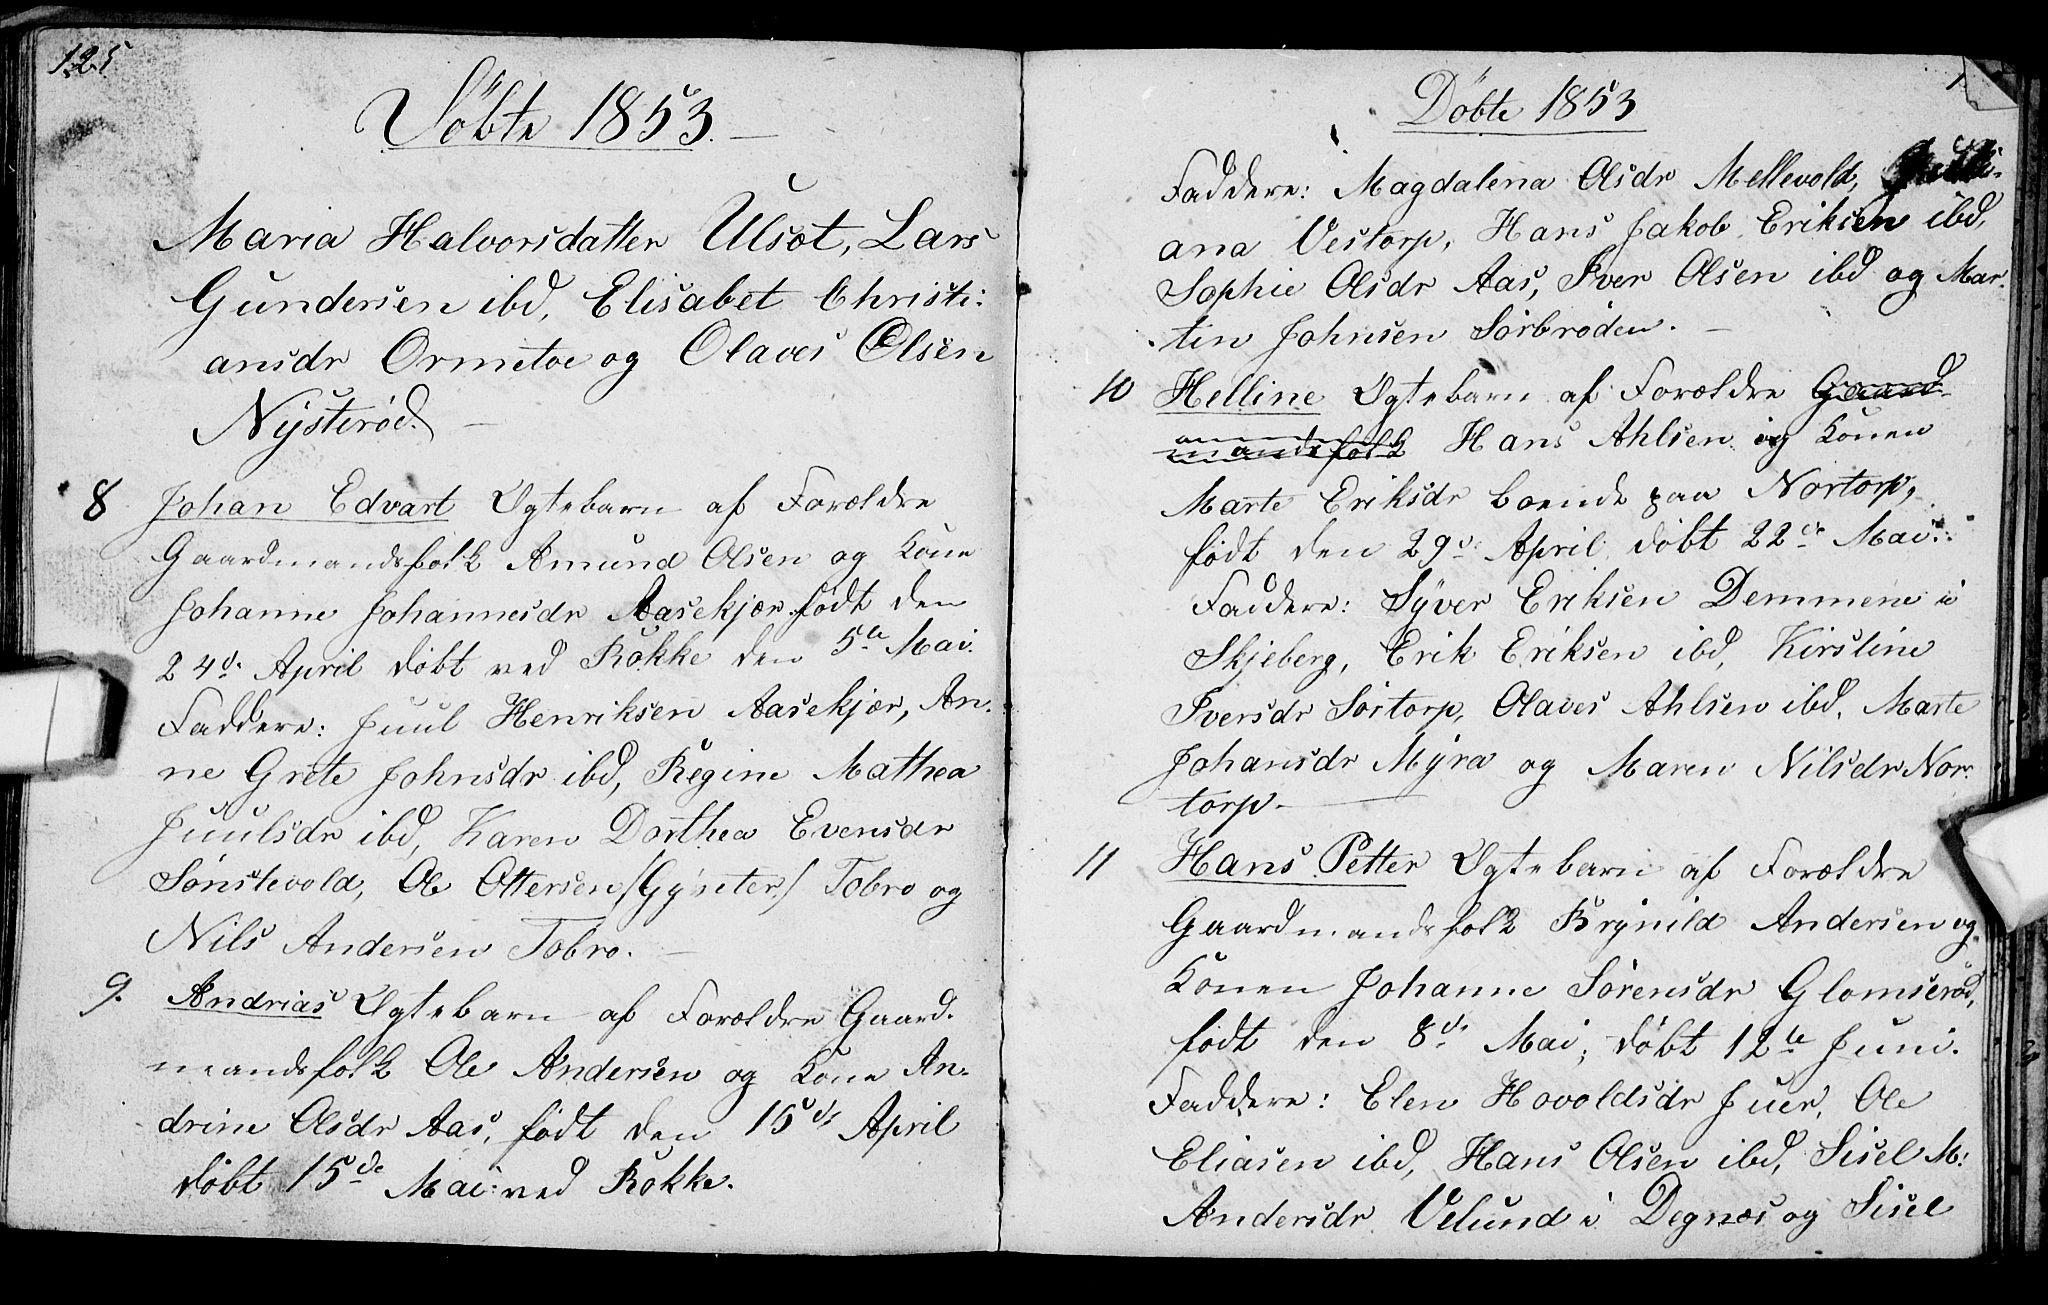 125
Döbte 1853.
Maria Halvorsdatter Ulsöt, Lars
Gundersen ibd, Elisabet Christi:
ansdr Ormetoe og Olaves Olsen
Nysteröd.
8 Johan Edvart Ægtebarn af Forældre
Gaardmandsfolk Amund Olsen og Kone
Johanne Johannesdr Aasekjær. födt den
24d. April döbt ved Rokke den 5te Mai.
Faddere: Juul Henriksen Aasekjær, An-
ne Grete Johnsdr ibd, Regine Mathea
Juulsdr ibd, Karen Dorthea Evensdr
Sönstevold, Ole Ottersen /Gynter/ Tobro og
Nils Andersen Tobro.
9. Andrias Ægtebarn af Forældre Gaard-
mandsfolk Ole Andersen og Kone An-
drine Olsdr Aas, födt den 15de April
döbt 15de Mai: ved Rokke.
Döbte 1853
Faddere: Magdalena Olsdr Mellevold,
ana Vestorp, Hans Jakob Eriksen ibd,
Sophie Olsdr Aas, Iver Olsen ibd og Mar-
tin Johnsen Sörbröden.
10 Helline Ægtebarn af Forældre Gaard-
mandsfolk Hans Ahlsen og Konen
Marte Eriksdr boende paa Nortorp,
födt den 29d. April döbt 22de Mai:
Faddere: Syver Eriksen Demmene i
Skjeberg, Erik Eriksen ibd, Kirstine
Iversdr Sörtorp, Olaves Ahlsen ibd, Marte
Johansdr Myra og Maren Nilsdr Nor-
torp.
11 Hans Petter Ægtebarn af Forældre
Gaardmandsfolk Brynild Andersen og
Konen Johanne Sörensdr Glomseröd,
födt den 8d. Mai, döbt 12te Juni.
Faddere: Elen Hovoldsdr Juer, Ole
Eliasen ibd, Hans Olsen ibd, Sisel M:
Andersdr Velund i Degnæs og Sisel